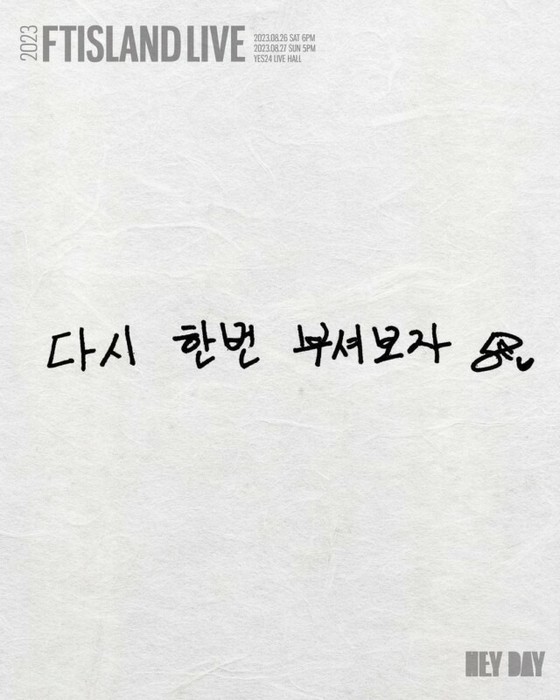 2023
FTISLAND LIVE
2023.08.26 SAT 6PM
2023.08.27 SUN 5PM
YES24 LIVE HALL
다시 한번 부셔보자
HEY DAY